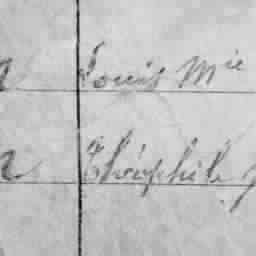 Louis Mie
Théophile